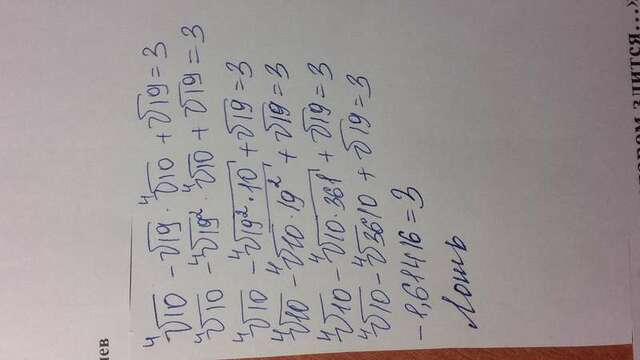 иев
⁴√10 - √19 · ⁴√10 + √19 = 3
⁴√10 - ⁴√19² · ⁴√10 + √19 = 3
⁴√10 - ⁴√19² · 10 + √19 = 3
⁴√10 - ⁴√10 · 19² + √19 = 3
⁴√10 - ⁴√10 · 361 + √19 = 3
⁴√10 - ⁴√3610 + √19 = 3
- 1,61416 = 3
Лошь
злится...»